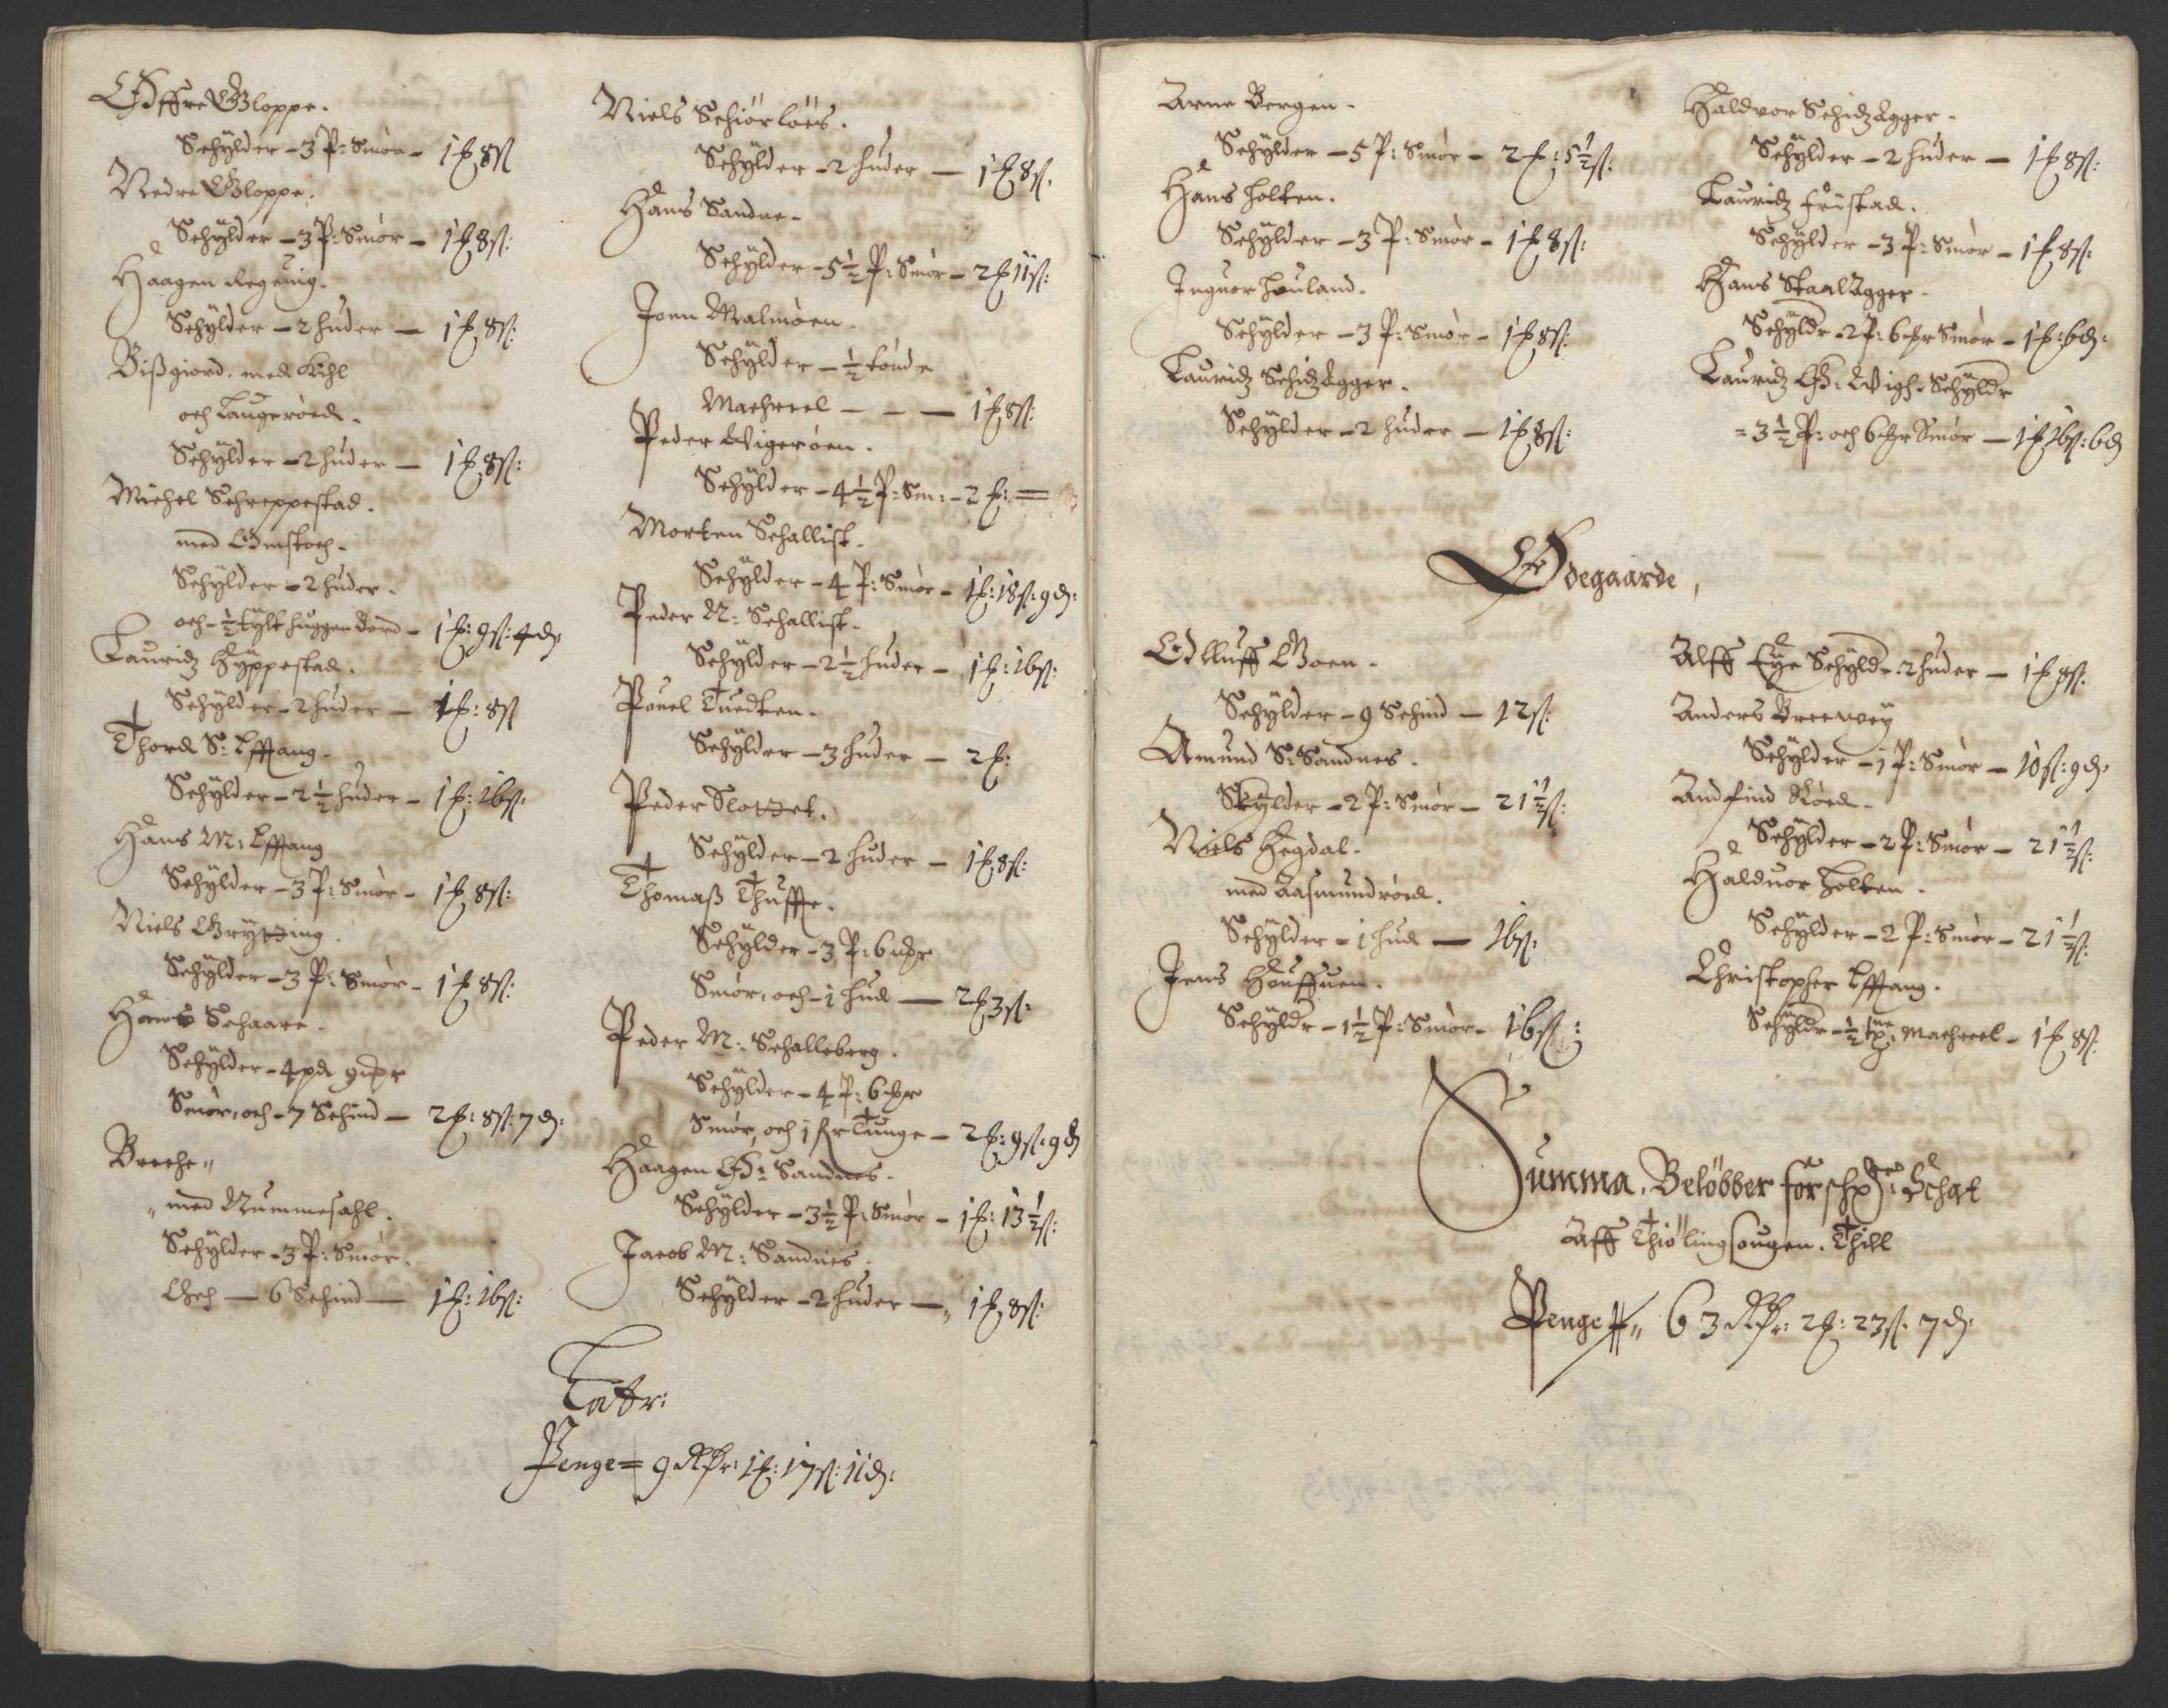 Øffre Gloppe.
Schÿlder – 3 P: Smör – 1 ƒ 8 ß
Nedre Gloppe.
Schÿlder – 3 P: Smör – 1 ƒ 8 ß:
Haagen Regeuig.
Schÿlder – 2 huder – 1 ƒ 8 ß:
Bißgiord. med Kihl
och Laugeröed.
Schÿlder – 2 huder – 1 ƒ 8 ß:
Michel Schreppestad.
med
Schÿlder – 2 huder.
och – ½ tÿlt huggen bord – 1 ƒ: 9 ß: 4 d:
Lauridz Hÿppestad.
Schÿlder – 2 huder – 1 ƒ: 8 ß
Thord S: Efftang.
Schÿlder – 2½ huder – 1 ƒ: 16 ß:
Hans M: Efftang
Schÿlder – 3 P: Smör – 1 ƒ 8 ß:
Niels Grÿtting.
Schÿlder – 3 P: Smör – 1 ƒ 8 ß:
Hans Schaare.
Schÿlder – 4 pd 9 mr
Smör, och – 7 Schind – 2 ƒ: 8 ß: 7 d:
Breche „
„ med Nummesahl.
Schÿlder – 3 P: Smör.
Och – 6 Schind – 1 ƒ: 16 ß:
Niels Schiörlöes.
Schÿlder – 2 huder – 1 ƒ 8 ß.
Hans Sandne.
Schÿlder – 5½ P: Smör – 2 ƒ 11 ß:
Joen Malmöen.
Schÿlder – ½ tönde
Machreel – – – 1 ƒ 8 ß:
Peder Wigeröen.
Schÿlder – 4½ P: Sm: – 2 ƒ: =
Morten Schallist.
Schÿlder – 4 P: Smör – 1 ƒ: 18 ß: 9 d:
Peder N: Schallist.
Schÿlder – 2½ huder – 1 ƒ: 16 ß:
Pouel Tuedten.
Schÿlder – 3 huder – 2 ƒ:
Peder Slottet.
Schÿlder – 2 huder – 1 ƒ 8 ß:
Thomaß Thuffte.
Schÿlder – 3 P: 6 mr
Smör, och – 1 hud – 2 ƒ 3 ß:
Peder M: Schalleberg.
Schÿlder – 4 P: 6 mr
Smör, och 1 fr Tunge – 2 ƒ: 9 ß: 9 d
Haagen Ø: Sandnes.
Schÿlder – 3½ P: Smör – 1 ƒ: 13½ ß:
Jacob M: Sandnes.
Schÿlder – 2 huder – „ 1 ƒ 8 ß:
Latr:
Penge = 9 Rdr: 1 ƒ: 17 ß: 11 d:
Arne Bergen.
Schÿlder – 5 P: Smör – 2 ƒ: 5½ ß:
Hans holten.
Schÿlder – 3 P: Smör – 1 ƒ 8 ß:
Inguor houland.
Schÿlder – 3 P: Smör – 1 ƒ 8 ß:
Lauridz Schidzagger.
Schÿlder – 2 huder – 1 ƒ 8 ß:
Haldvor Schidzagger.
Schÿlder – 2 huder – 1 ƒ 8 ß:
Lauridz fristad.
Schÿlder – 3 P: Smör – 1 ƒ 8 ß:
Hans Staalagger.
Schÿldr – 2 P: 6 mr Smör – 1 ƒ: 6 d:
Lauridz Ø: Wigh. Schÿldr
= 3½ P: och 6 mr Smör – 1 ƒ 16 ß: 6 d
Ødegaarde,
Olluff Goen.
Schÿlder – 9 Schind – 12 ß:
Amund S: Sandnes.
Skÿlder – 2 P: Smör – 21½ ß:
Niels Hegdal.
med Aasmundröed.
Schÿlder – 1 hud – 16 ß:
Jens Houffuen.
Schÿldr – 1½ P: Smör – 16 ß:
Alff Eÿe Schÿldr. 2 huder – 1 ƒ 8 ß:
Anders Breeueÿ
Schÿlder – 1 P: Smör – 10 ß: 9 d.
Andfind Röed.
Schÿlder – 2 P: Smör – 21½ ß:
Halduor holten.
Schÿlder – 2 P: Smör – 21½ ß:
Christopher Efftang.
Schÿldr – ½ tne Machreel – 1 ƒ 8 ß:
Summa. Beløbber for Schat
Aff Thiölingsougen. Thill
Penge „ 63 Rdr: 2 ƒ: 23 ß: 7 d: